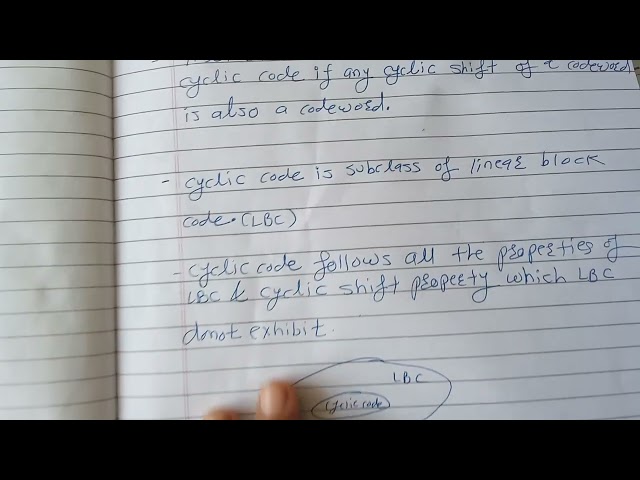 cyclic code if any cyclic shift of a codeword
is also a codeword.
- cyclic code is subclass of linear block
code. (LBC)
- cyclic code follows all the properties of
LBC & cyclic shift property which LBC
donot exhibit.
LBC
cyclic code